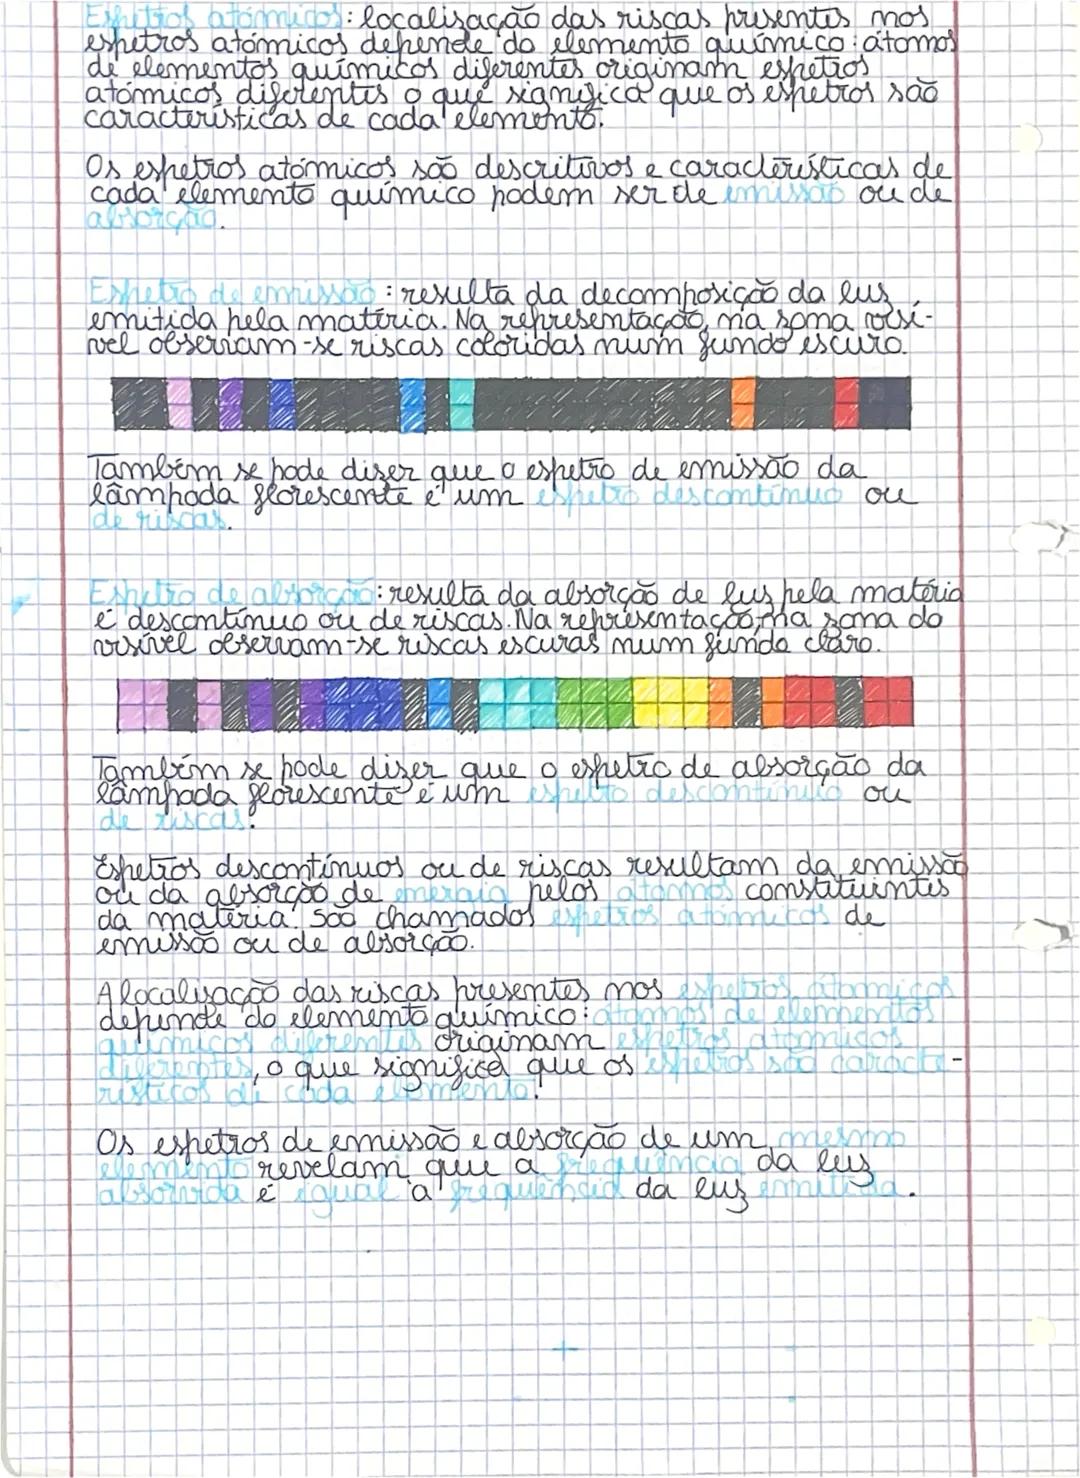 Espetros atómicos: localização das riscas presentes nos
espetros atómicos depende do elemento químico: átomos
de elementos químicos diferentes originam espetros
atómicos diferentes o que significa que os espetros são
características de cada elemento.
Os espetros atómicos são descritivos e características de
cada elemento químico podem ser de emissão ou de
absorção.
Espetro de emissão: resulta da decomposição da luz
emitida pela matéria. Na representação, na zona visí-
vel observam-se riscas coloridas num fundo escuro.
Também se pode dizer que o espetro de emissão da
lâmpada florescente é um espetro descontínuo ou
de riscas.
Espetro de absorção: resulta da absorção de luz pela matéria
é descontínuo ou de riscas. Na representação, na zona do
visível observam-se riscas escuras num fundo claro.
Também se pode dizer que o espetro de absorção da
lâmpada florescente é um espetro descontínuo ou
de riscas.
Espetros descontínuos ou de riscas resultam da emissão
ou da absorção de energia pelos átomos constituintes
da matéria. São chamados espetros atómicos de
emissão ou de absorção.
A localização das riscas presentes nos espetros atómicos
depende do elemento químico: átomos de elementos
químicos diferentes originam espetros atómicos
diferentes, o que significa que os espetros são caracte-
rísticos de cada elemento.
Os espetros de emissão e absorção de um mesmo
elemento revelam que a frequência da luz
absorvida é igual à frequência da luz emitida.